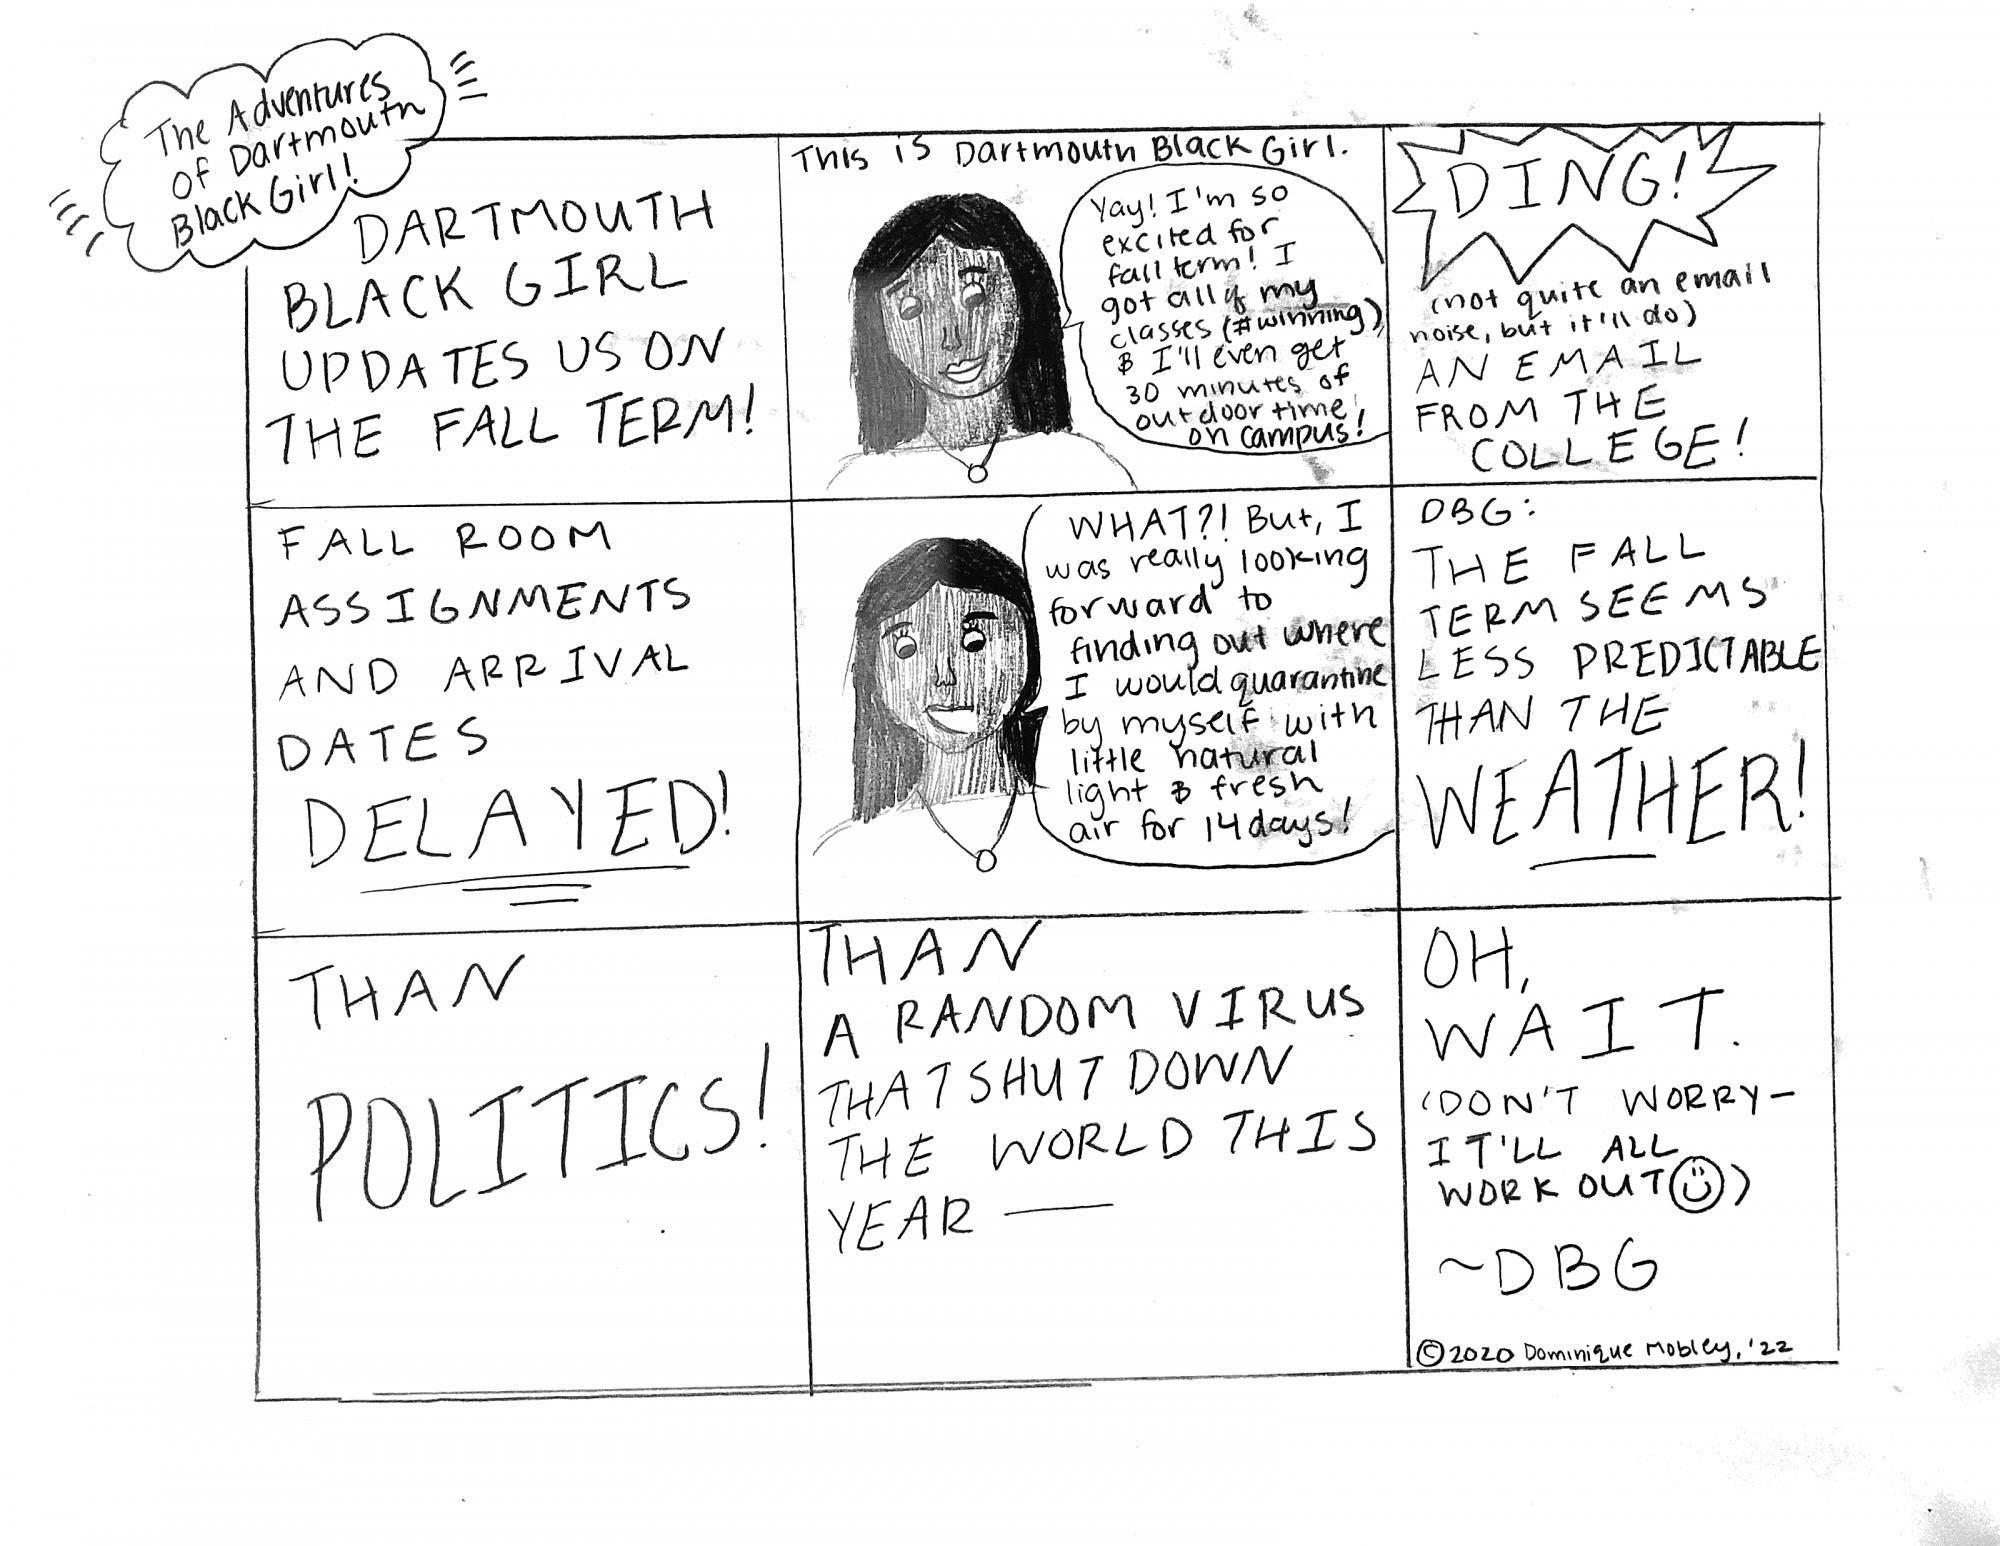 The Adventures
of Dartmouth
Black Girl!
DARTMOUTH
BLACK GIRL
UPDATES US ON
THE FALL TERM!
This is Dartmouth Black Girl.
Yay! I'm so
excited for
fall term! I
got all of my
classes (#winning)
& I'll even get
30 minutes of
outdoor time
on campus!
DING!
(not quite an email
noise, but it'll do)
AN EMAIL
FROM THE
COLLEGE!
FALL ROOM
ASSIGNMENTS
AND ARRIVAL
DATES
DELAYED!
WHAT?! But, I
was really looking
forward to
finding out where
I would quarantine
by myself with
little natural
light & fresh
air for 14 days!
DBG:
THE FALL
TERM SEEMS
LESS PREDICTABLE
THAN THE
WEATHER!
THAN
POLITICS!
THAN
A RANDOM VIRUS
THAT SHUT DOWN
THE WORLD THIS
YEAR —
OH,
WAIT.
(DON'T WORRY—
IT'LL ALL
WORK OUT☺)
~DBG
©2020 Dominique Mobley, '22